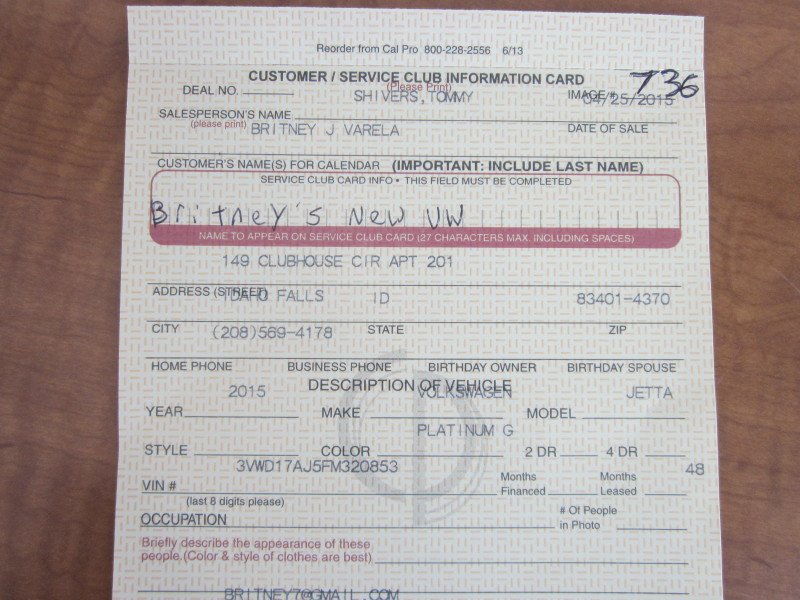 Reorder from Cal Pro 800-228-2556 6/13
CUSTOMER / SERVICE CLUB INFORMATION CARD
(Please Print)
DEAL NO. SHIVERS,TOMMY IMAGE # 736
04/25/2015
SALESPERSON'S NAME
(please print) BRITNEY J VARELA DATE OF SALE
CUSTOMER'S NAME(S) FOR CALENDAR (IMPORTANT: INCLUDE LAST NAME)
SERVICE CLUB CARD INFO • THIS FIELD MUST BE COMPLETED
Britney's New VW
NAME TO APPEAR ON SERVICE CLUB CARD (27 CHARACTERS MAX. INCLUDING SPACES)
149 CLUBHOUSE CIR APT 201
ADDRESS (STREET) IDAHO FALLS ID 83401-4370
CITY (208)569-4178 STATE ZIP
HOME PHONE BUSINESS PHONE BIRTHDAY OWNER BIRTHDAY SPOUSE
DESCRIPTION OF VEHICLE
2015 VOLKSWAGEN JETTA
YEAR MAKE MODEL
PLATINUM G
STYLE COLOR 2 DR 4 DR
3VWD17AJ5FM320853 48
VIN # Months Financed Months Leased
(last 8 digits please)
OCCUPATION # Of People in Photo
Briefly describe the appearance of these
people.(Color & style of clothes are best)
BRITNEY7@GMAIL.COM